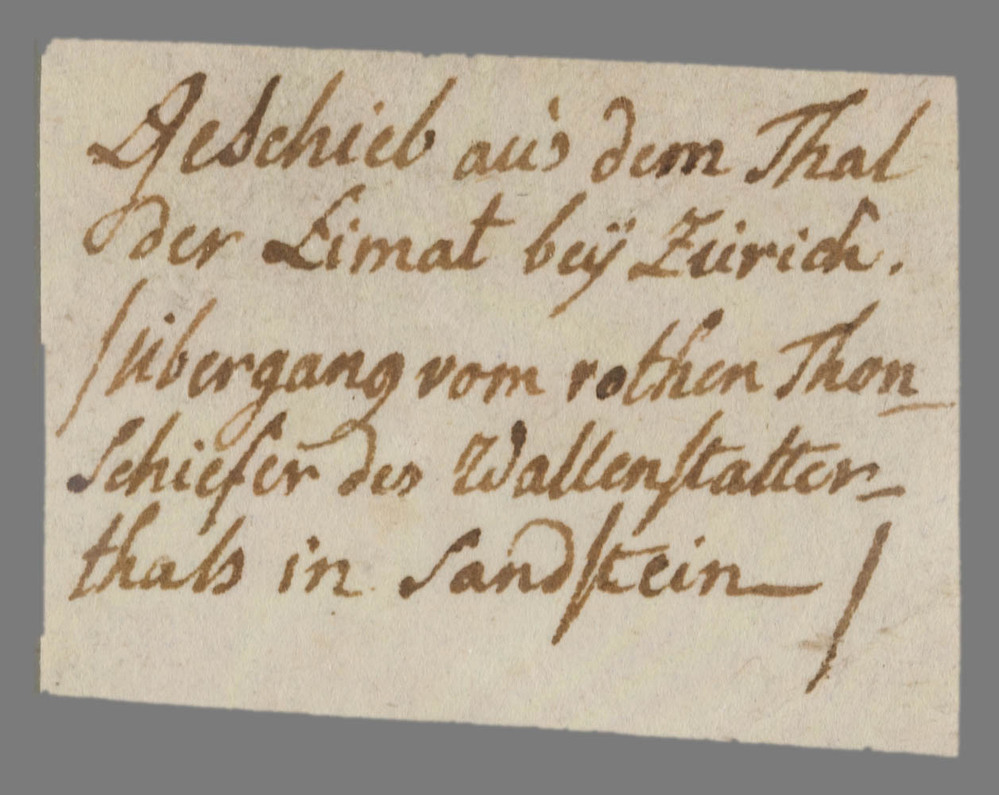 Geschieb aus dem Thal
der Limat beÿ Zürich.
/übergang vom rothen Thon_
Schiefer des Wallenstatter_
thals in Sandstein /